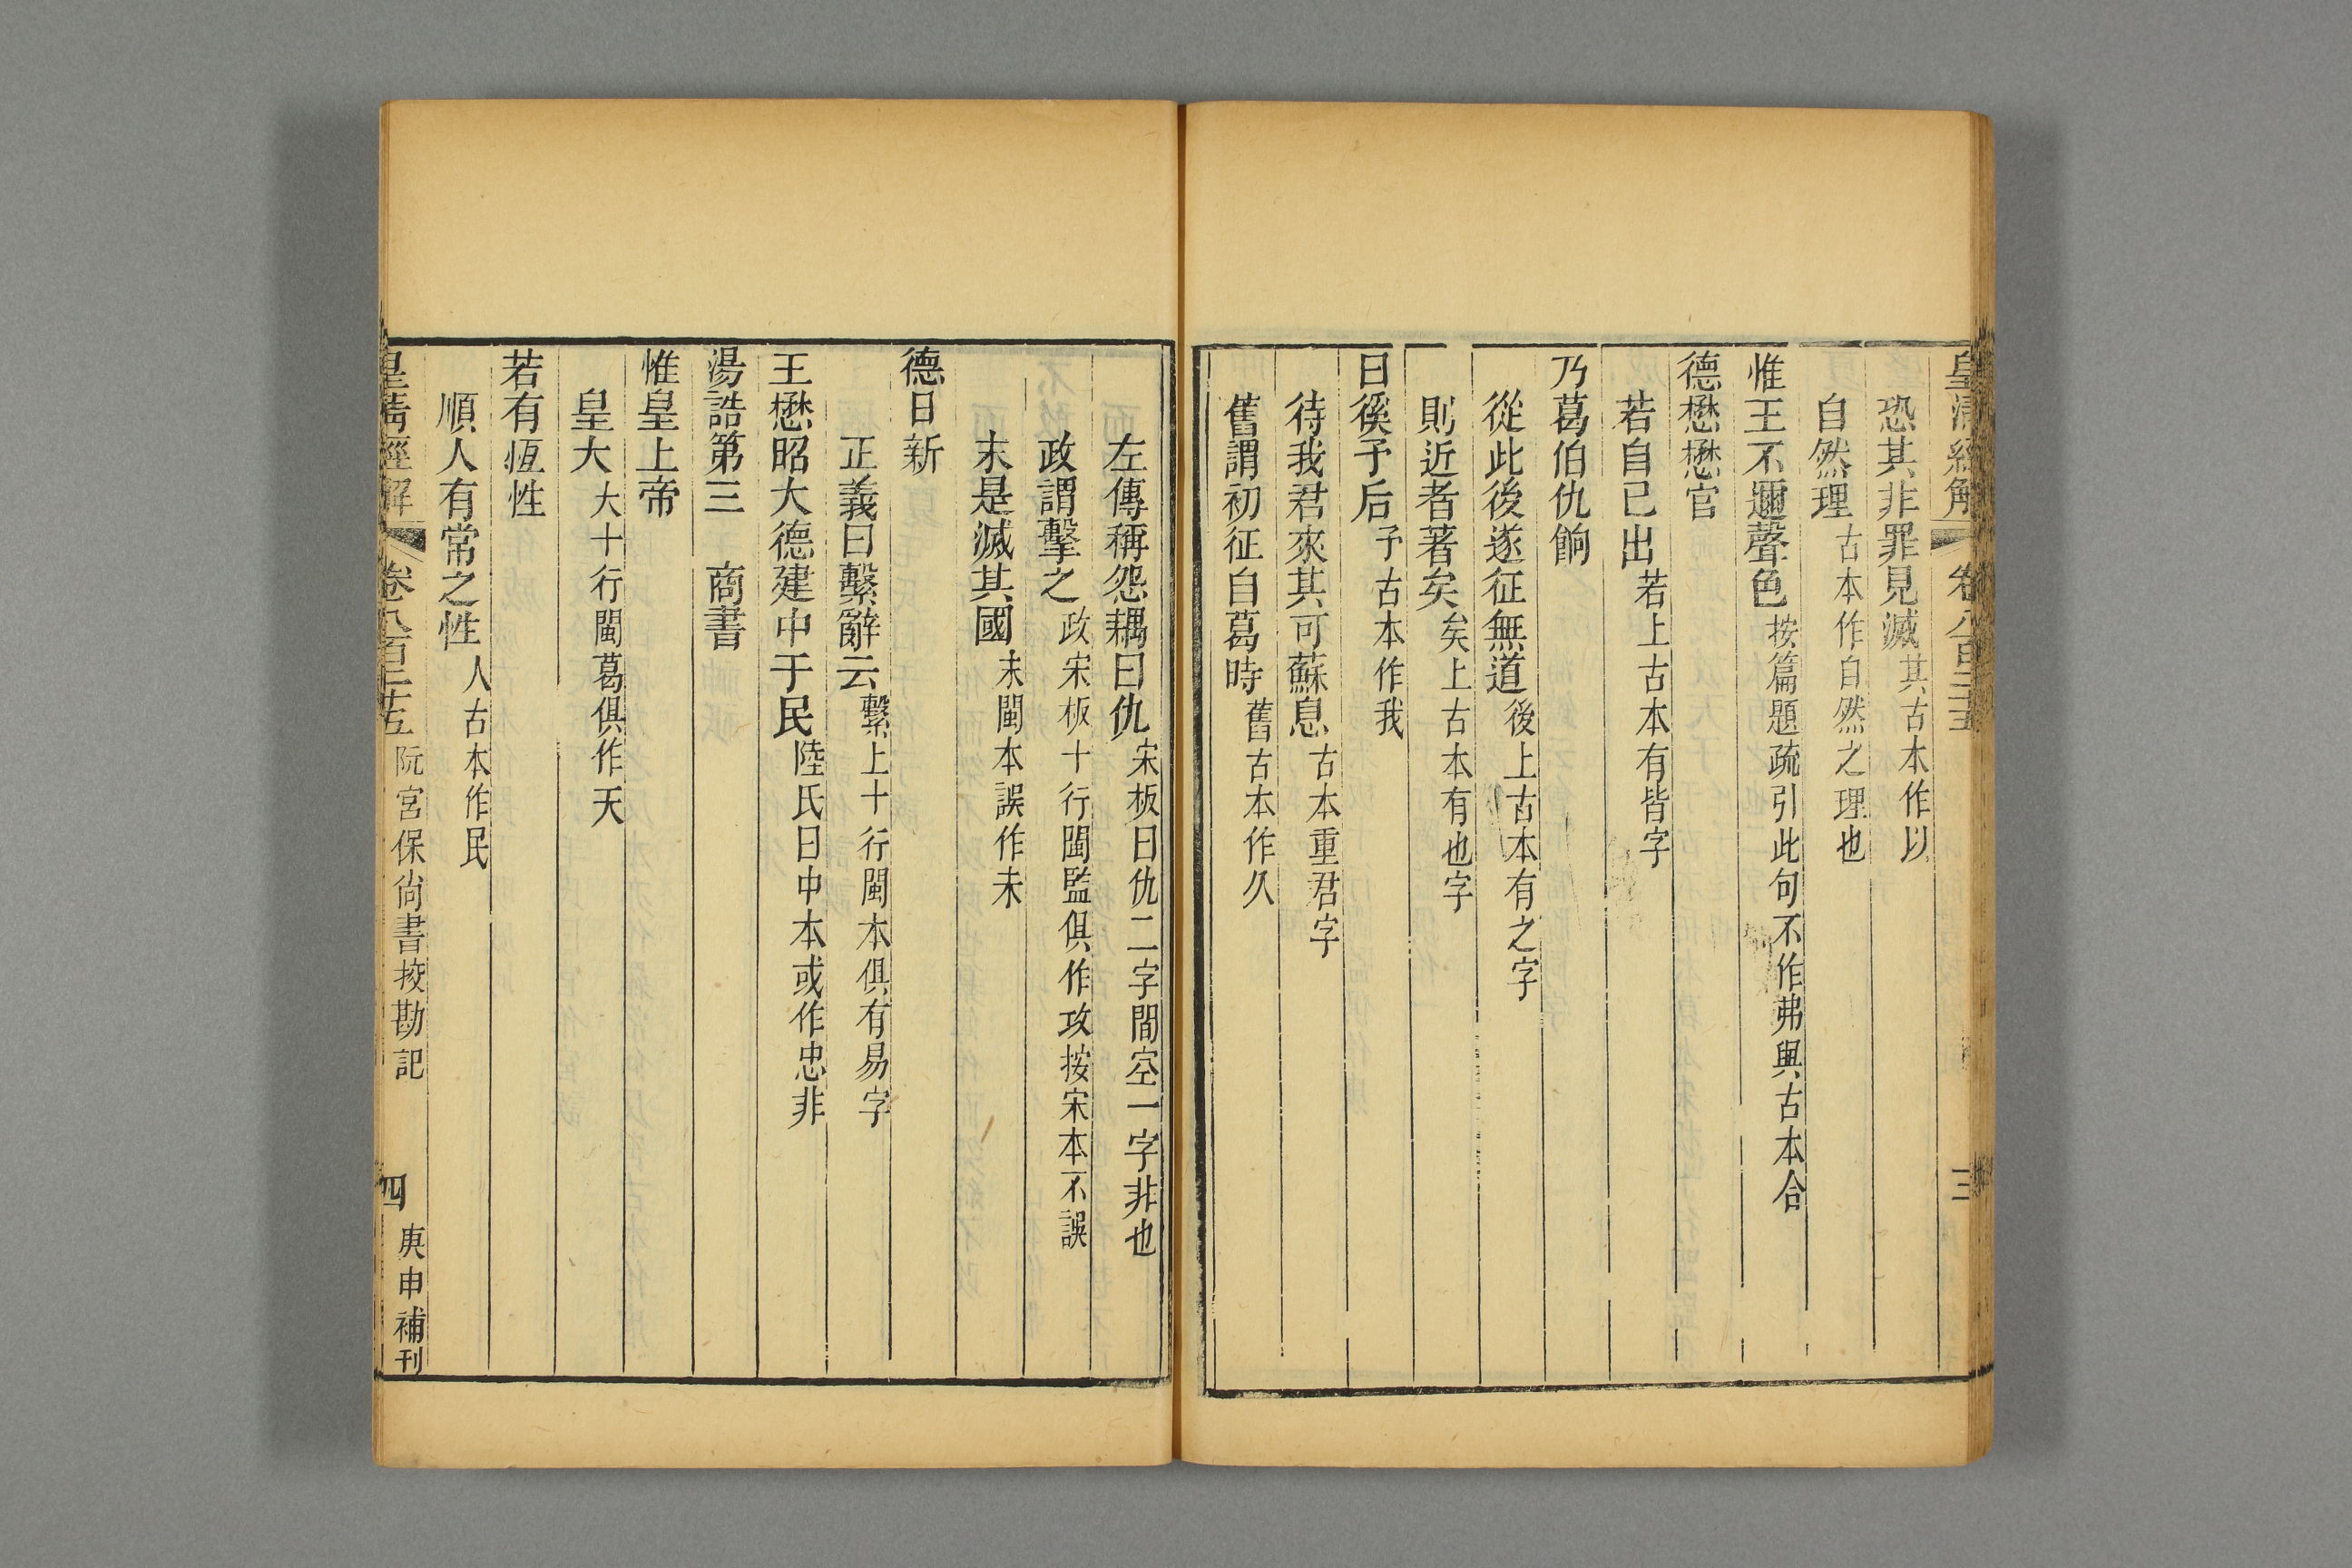 皇清經解 卷八百二十五 三
恐其非罪見滅其古本作以
自然理古本作自然之理也
惟王不邇聲色按篇題疏引此句不作弗與古本合
德懋懋官
若自己出若上古本有皆字
乃葛伯仇餉
從此後遂征無道後上古本有之字
則近者著矣矣上古本有也字
曰徯予后予古本作我
待我君來其可蘇息古本重君字
舊謂初征自葛時舊古本作久
左傳稱怨耦曰仇宋板曰仇二字間空一字非也
政謂擊之政宋板十行閩監俱作攻按宋本不誤
末是滅其國末閩本誤作未
德日新
正義曰繫辭云繫上十行閩本俱有易字
王懋昭大德建中于民陸氏曰中本或作忠非
湯誥第三 商書
惟皇上帝
皇大大十行閩葛俱作天
若有恆性
順人有常之性人古本作民
皇清經解 卷八百二十五 阮宮保尚書挍勘記 四 庚申補刊